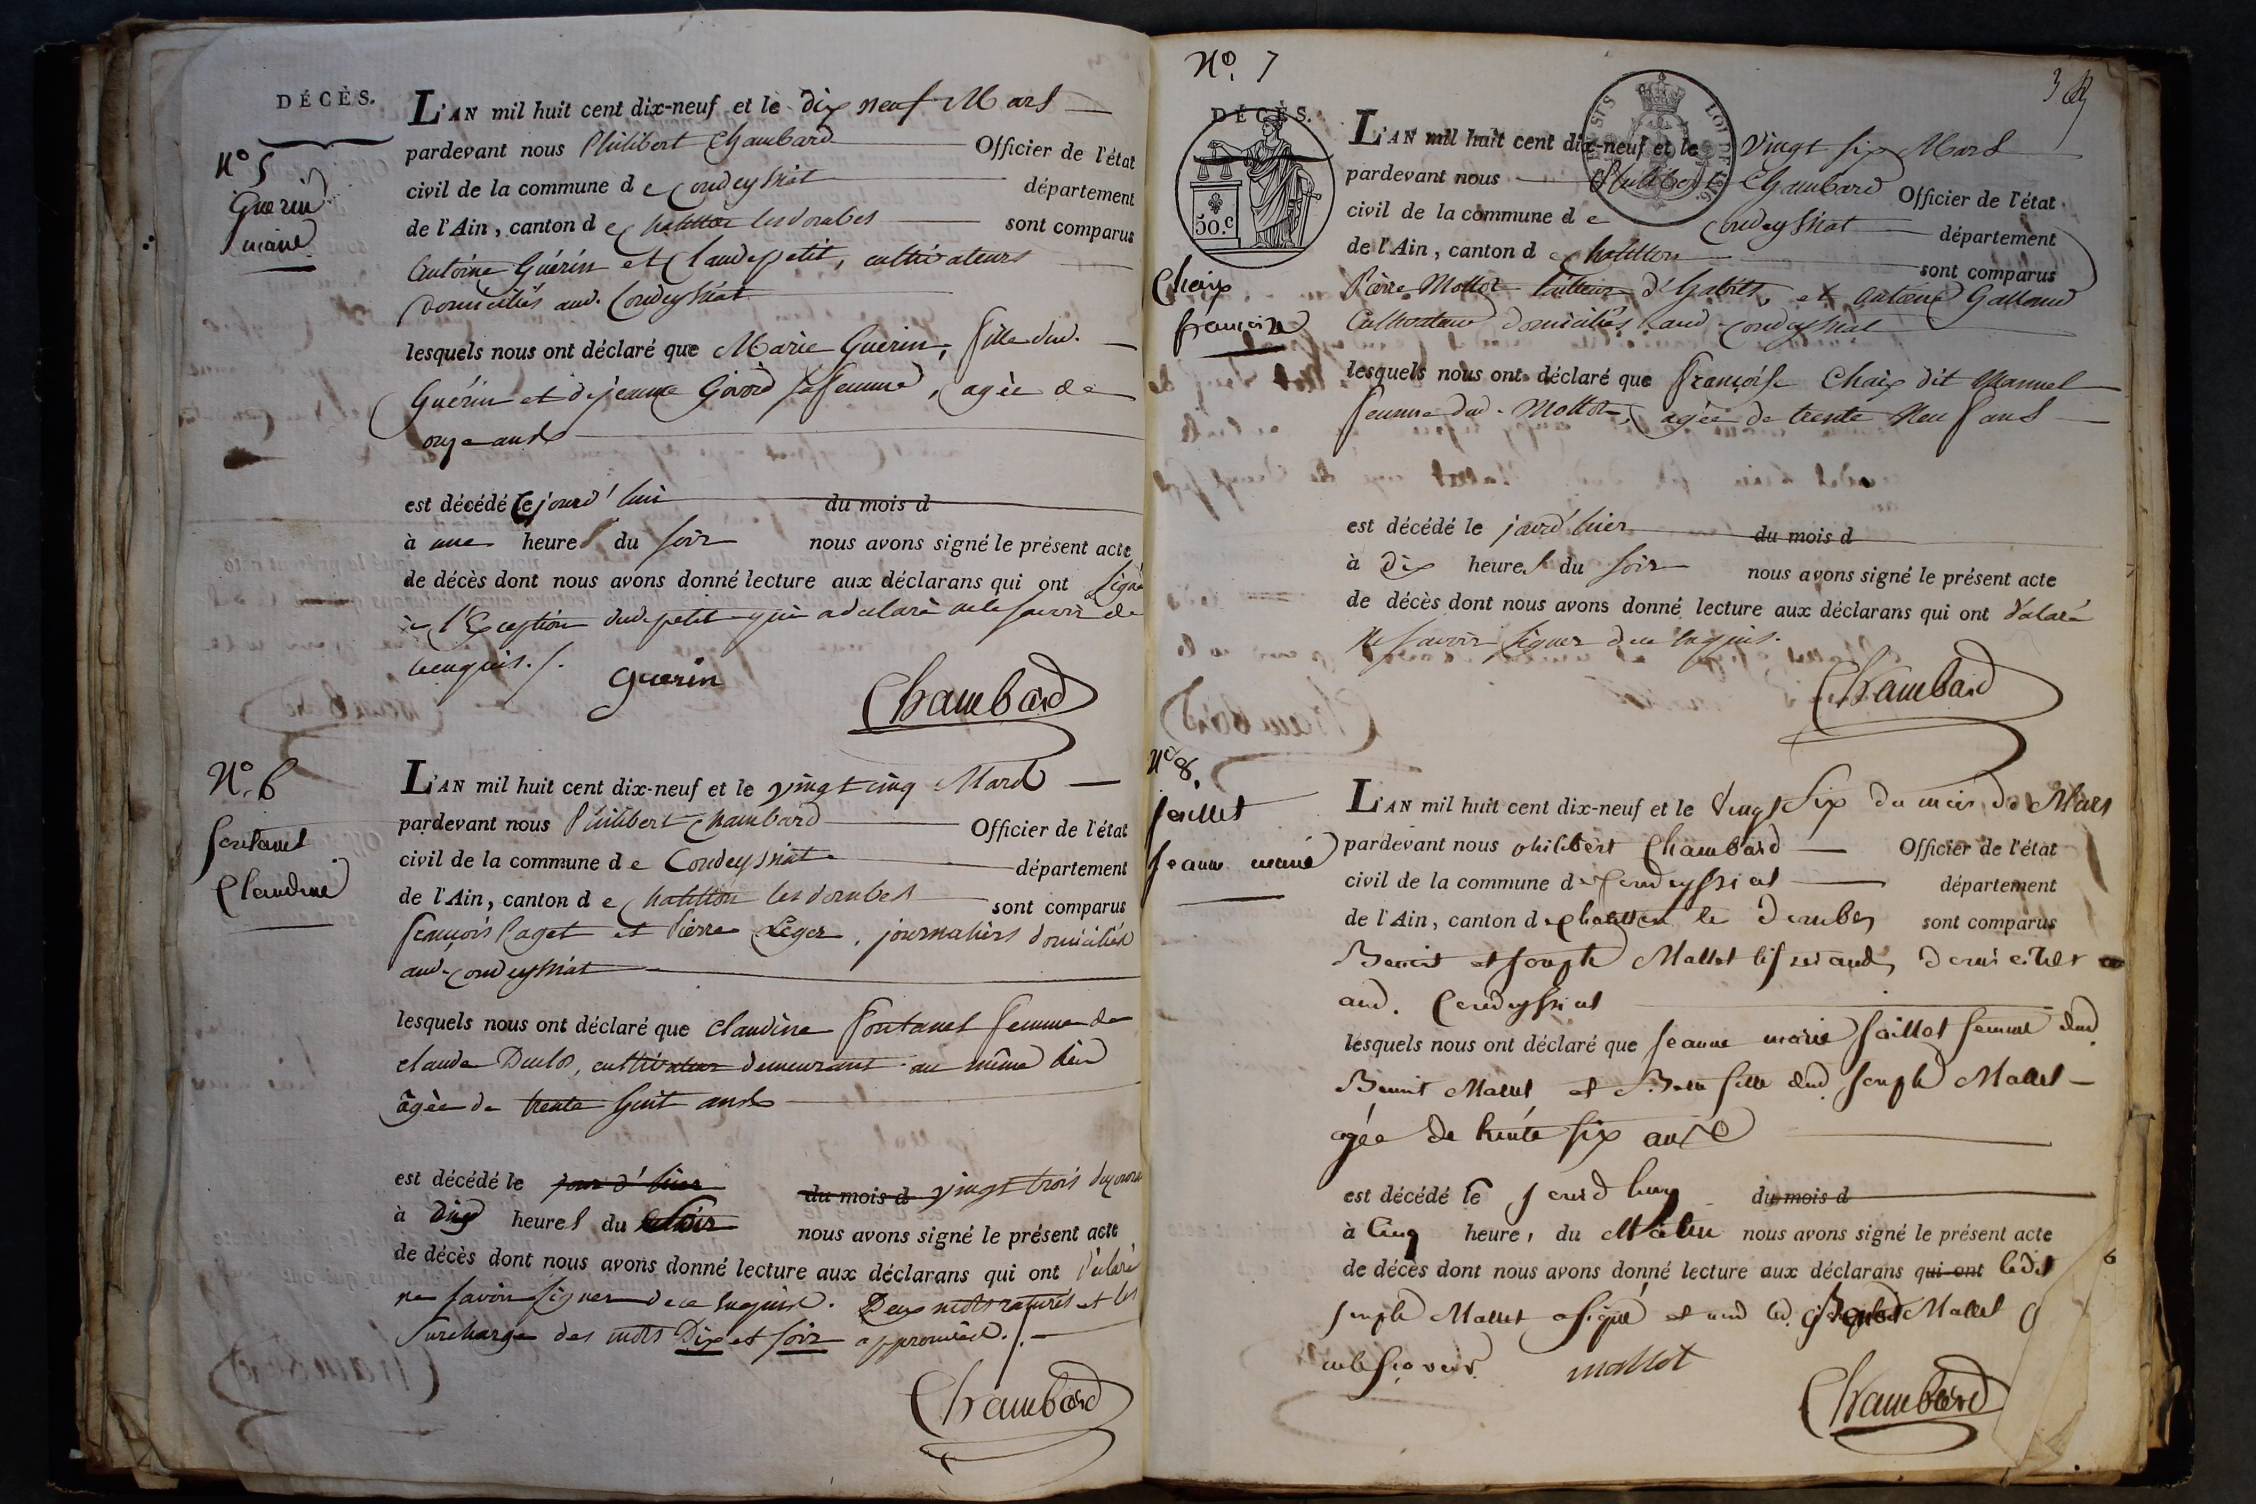 DÉCÈS.
N° 5
Guerin
marie
L'AN mil huit cent dix-neuf et le dix neuf Mars
pardevant nous Philibert Chambard Officier de l'état
civil de la commune de Condeyssiat département
de l'Ain, canton de chatillon les dombes sont comparus
Antoine Guérin et Claude petit, cultivateurs
domiciliés aud. Condeyssiat
lesquels nous ont déclaré que Marie Guerin, fille dud.
Guérin et de jeanne Givord sa femme, agée de
onze ans
est décédé Cejourd'hui du mois d
à une heures du soir nous avons signé le présent acte
de décès dont nous avons donné lecture aux déclarans qui ont signé
à l'Exception dud. petit qui a déclaré ne le savoir de
ce enquis.
guerin
Chambard
N° 6
fontanel
Claudine
L'AN mil huit cent dix-neuf et le vingt cinq Mars
pardevant nous Philibert Chambard Officier de l'état
civil de la commune de Condeyssiat département
de l'Ain, canton de chatillon les dombes sont comparus
françois Paget et Pierre Léger, journaliers domiciliés
aud. condeyssiat
lesquels nous ont déclaré que claudine fontanel femme de
claude Duclos, cultivateur demeurant au même lieu
âgée de trente huit ans
est décédé le jour d'hier du mois d vingt trois du courant
à dix heures du soir nous avons signé le présent acte
de décès dont nous avons donné lecture aux déclarans qui ont déclaré
ne savoir signer de ce enquis. Deux mots raturés et les
surcharge des mots Dix et soir approuvés.
Chambard
N°. 7
DÉCÈS.
50.c
Chaix
françoise
L'AN mil huit cent dix-neuf et le Vingt six Mars
pardevant nous Philibert Chambard Officier de l'état
civil de la commune de Condeyssiat département
de l'Ain, canton de chatillon sont comparus
Pierre Mottot tailleur d'habits, et antoine Galland
Cultivateur domiciliés aud. condeyssiat
lesquels nous ont déclaré que françoise Chaix dit Manuel
femme dud. Mottot, agée de trente neuf ans
est décédé le jourd'hier du mois d
à dix heures du soir nous avons signé le présent acte
de décès dont nous avons donné lecture aux déclarans qui ont déclaré
ne savoir signer de ce enquis.
Chambard
N° 8.
jaillet
jeanne marie
L'AN mil huit cent dix-neuf et le Vingt Six du mois de Mars
pardevant nous philibert Chambard Officier de l'état
civil de la commune de Condeyssiat département
de l'Ain, canton de chatillon les Dombes sont comparus
Benoit et joseph Mallet domiciliés
aud. Condeyssiat
lesquels nous ont déclaré que jeanne marie jaillet femme dud
Benoit Mallet et Belle fille dud. joseph Mallet
agée de trente six ans
est décédé le jourd huy du mois d
à Cinq heures du Matin nous avons signé le présent acte
de décès dont nous avons donné lecture aux déclarans qui ont ledit
joseph Mallet a signé et non led. Benoit Mallet
ne le scavoir mallot
Chambard